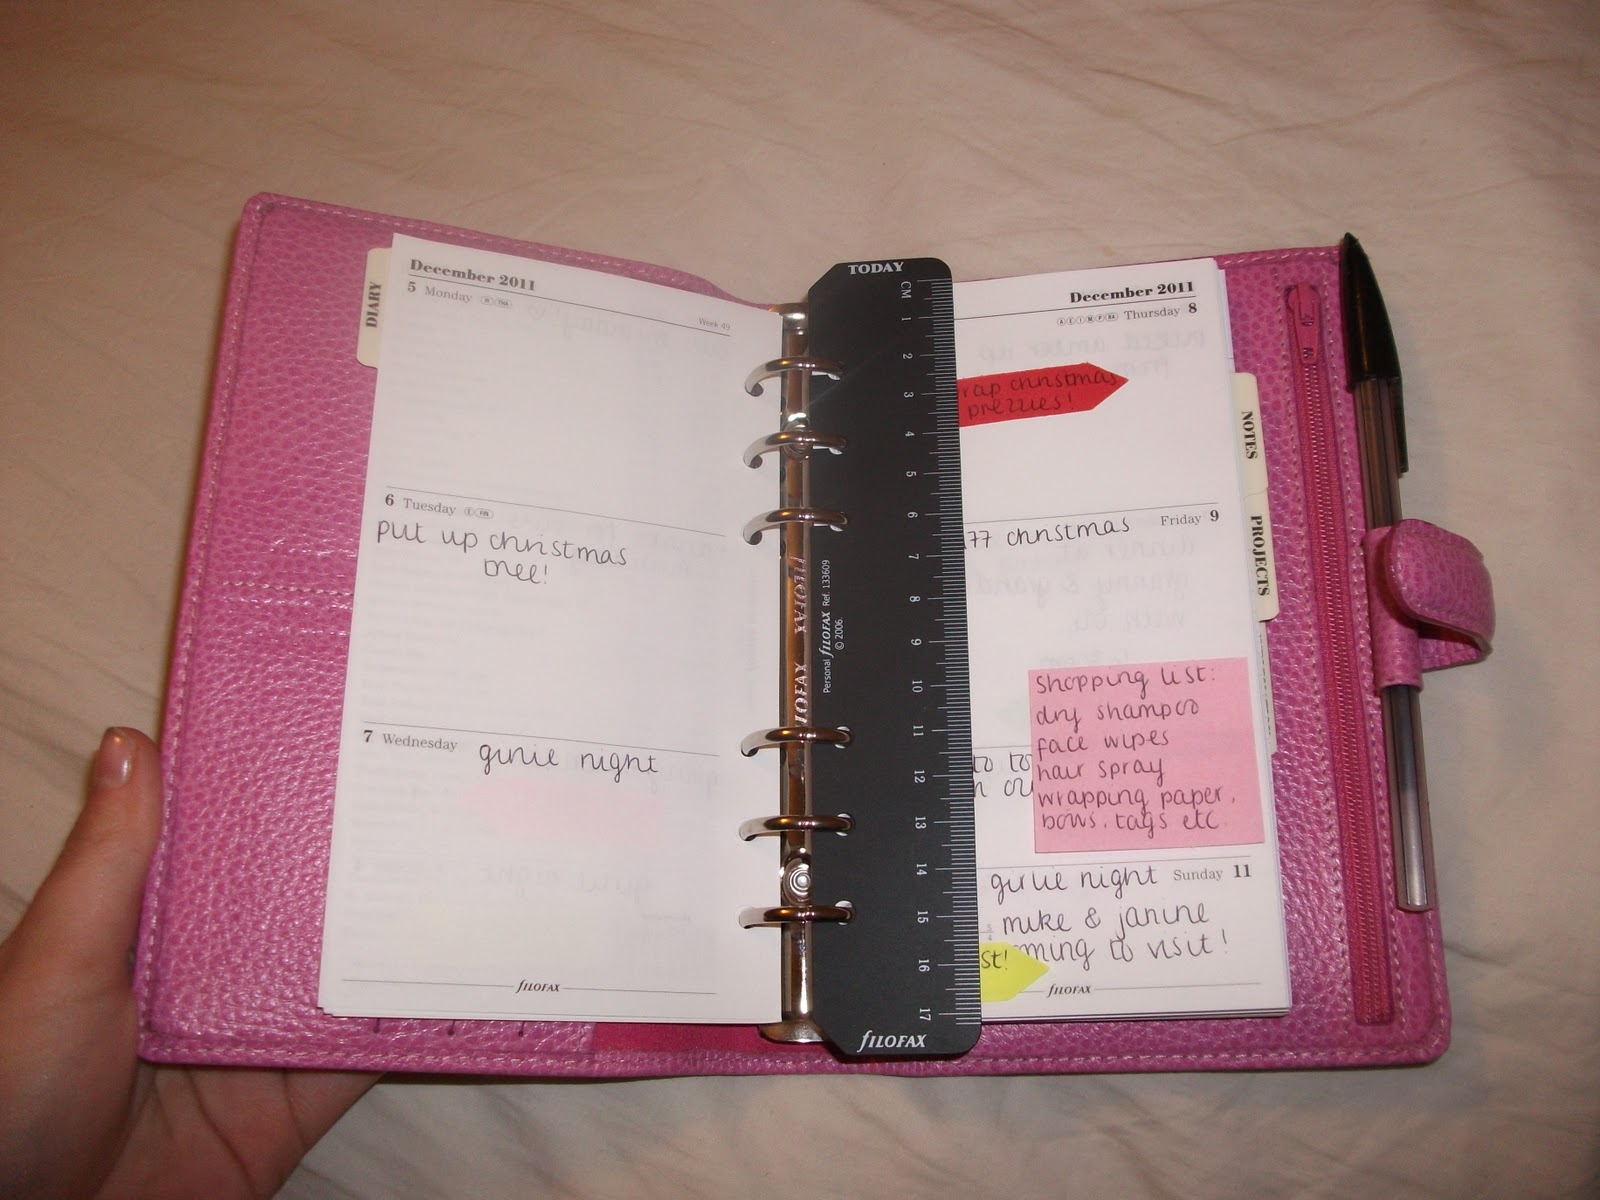 DIARY
December 2011
5 Monday
Week 49
6 Tuesday
put up christmas
tree!
7 Wednesday
girlie night
fILOFAX
TODAY
CM
1
2
3
4
5
6
7
8
9
10
11
12
13
14
15
16
17
Personal fILOFAX Ref. 133609
© 2006
fILOFAX
FILOFAX
December 2011
Thursday 8
rap christmas
prezzies!
Friday 9
christmas
shopping list:
dry shampoo
face wipes
hair spray
wrapping paper,
bows, tags etc
Sunday 11
girlie night
mike & janine
ming to visit!
st!
fILOFAX
NOTES
PROJECTS